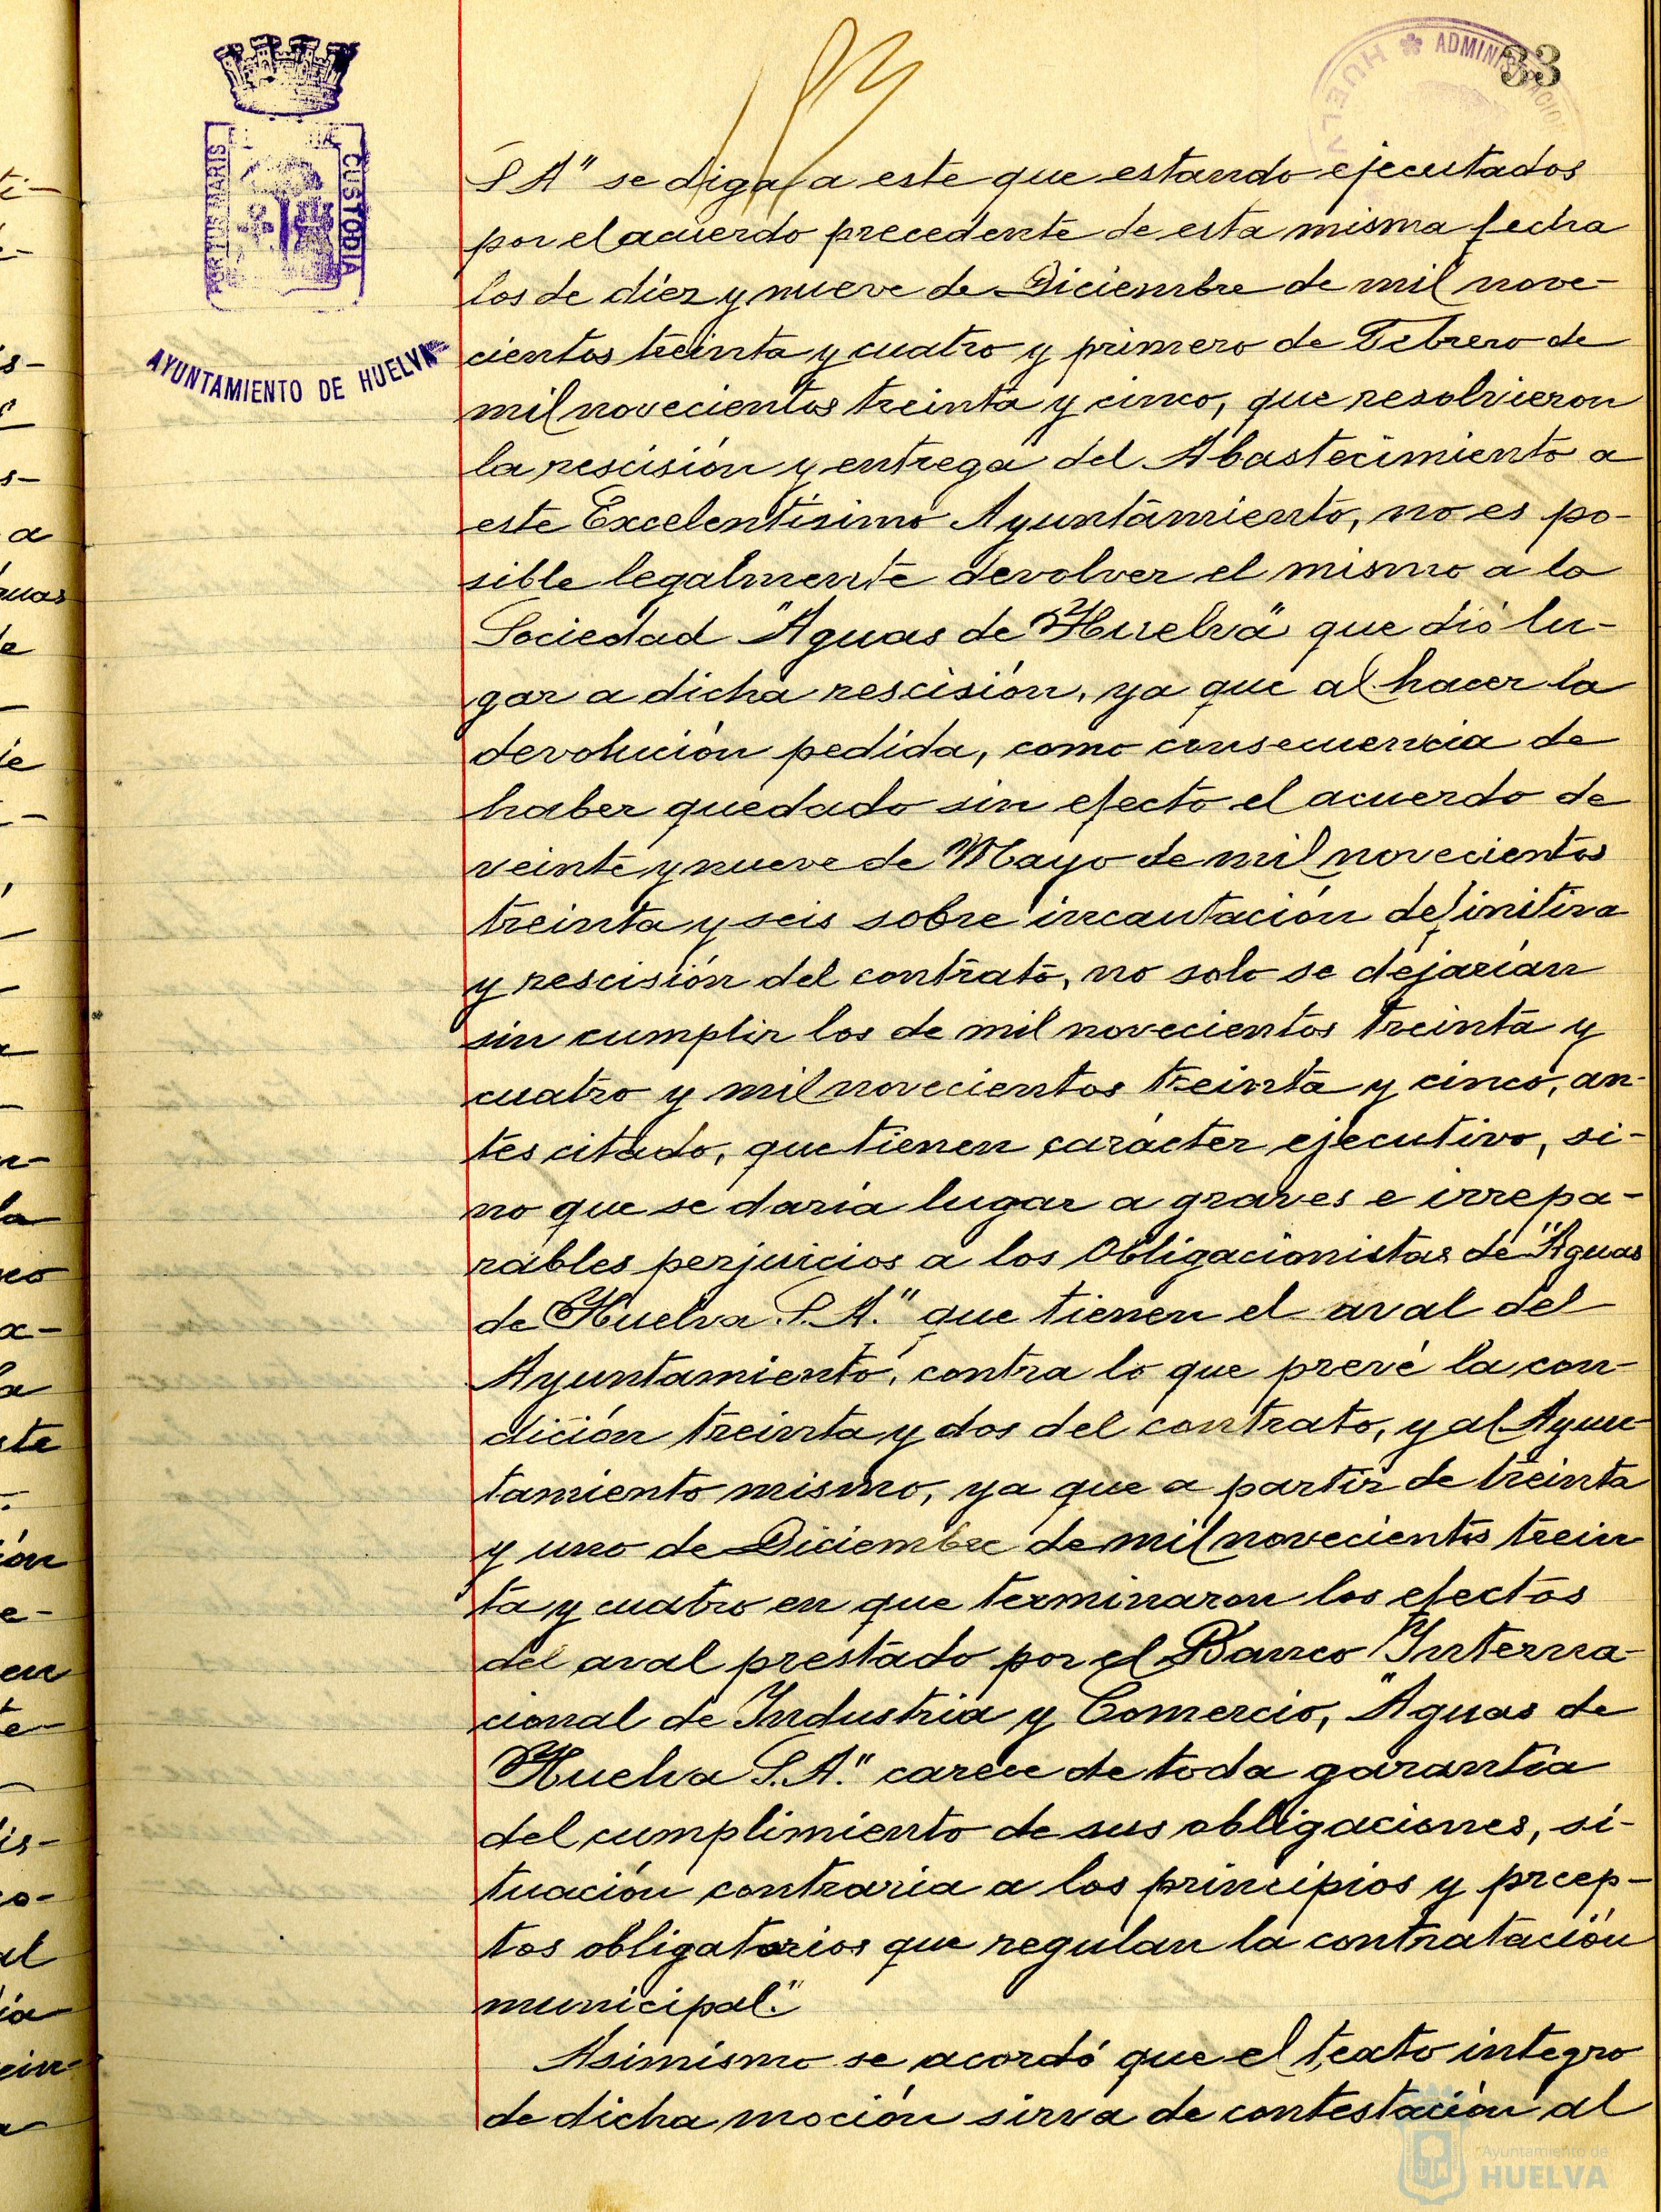 33
ADMINISTRACION
HUELVA
PORTUS MARIS
CUSTODIA
AYUNTAMIENTO DE HUELVA
S A" se diga a este que estando ejecutados
por el acuerdo precedente de esta misma fecha
los de diez y nueve de Diciembre de mil nove-
cientos treinta y cuatro y primero de Febrero de
mil novecientos treinta y cinco, que resolvieron
la rescisión y entrega del Abastecimiento a
este Excelentísimo Ayuntamiento, no es po-
sible legalmente devolver el mismo a la
Sociedad "Aguas de Huelva" que dió lu-
gar a dicha rescisión, ya que al hacer la
devolución pedida, como consecuencia de
haber quedado sin efecto el acuerdo de
veinte y nueve de Mayo de mil novecientos
treinta y seis sobre incautación definitiva
y rescisión del contrato, no solo se dejarían
sin cumplir los de mil novecientos treinta y
cuatro y mil novecientos treinta y cinco, an-
tes citado, que tienen carácter ejecutivo, si-
no que se daria lugar a graves e irrepa-
rables perjuicios a los Obligacionistas de "Aguas
de Huelva S.A." que tienen el aval del
Ayuntamiento, contra lo que prevé la con-
dición treinta y dos del contrato, y al Ayun-
tamiento mismo, ya que a partir de treinta
y uno de Diciembre de mil novecientos trein
ta y cuatro en que terminaron los efectos
del aval prestado por el Banco Interna-
cional de Industria y Comercio, "Aguas de
Huelva S.A." carece de toda garantía
del cumplimiento de sus obligaciones, si-
tuación contraria a los principios y prcep-
tos obligatorios que regulan la contratación
municipal."
Asimismo se acordó que el texto integro
de dicha moción sirva de contestación al
Ayuntamiento de
HUELVA